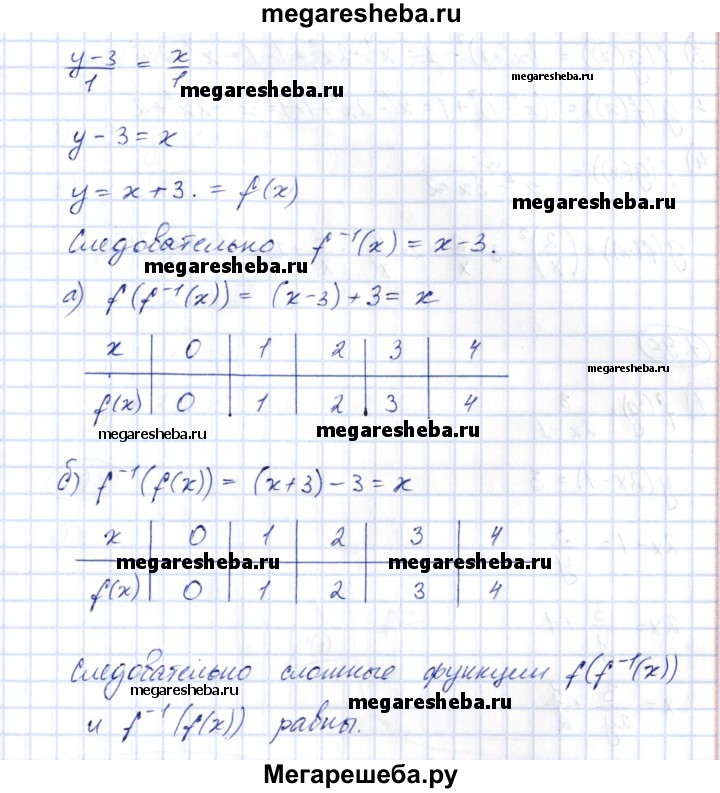 megaresheba.ru
(y-3)/1 = x/1
megaresheba.ru
megaresheba.ru
y - 3 = x
y = x + 3. = f(x)
megaresheba.ru
Следовательно f⁻¹(x) = x - 3.
megaresheba.ru
а) f(f⁻¹(x)) = (x-3) + 3 = x
x | 0 | 1 | 2 | 3 | 4
f(x) | 0 | 1 | 2 | 3 | 4
megaresheba.ru
megaresheba.ru
б) f⁻¹(f(x)) = (x+3) - 3 = x
x | 0 | 1 | 2 | 3 | 4
megaresheba.ru
megaresheba.ru
f(x) | 0 | 1 | 2 | 3 | 4
Следовательно сложные функции f(f⁻¹(x))
megaresheba.ru
megaresheba.ru
и f⁻¹(f(x)) равны.
Мегарешеба.ру